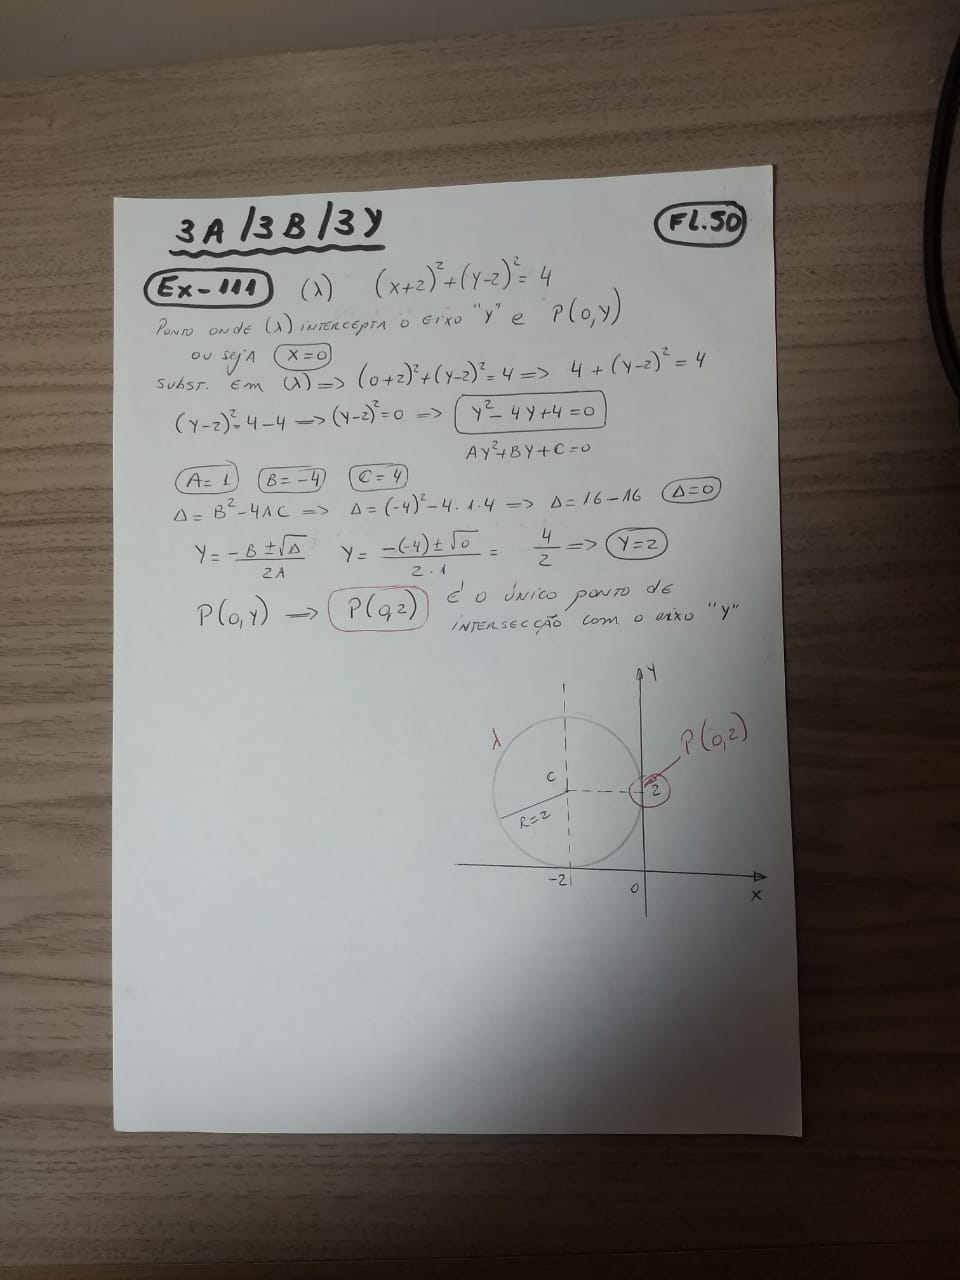 3A/3B/3Y
FL.50
Ex-111 (λ) (x+2)²+(y-2)²=4
PONTO ONDE (λ) INTERCEPTA O EIXO "Y" e P(0,Y)
OU SEJA X=0
SUBST. EM (λ) => (0+2)²+(Y-2)²=4 => 4+(Y-2)²=4
(Y-2)²=4-4 => (Y-2)²=0 => Y²-4Y+4=0
AY²+BY+C=0
A=1 B=-4 C=4
Δ=B²-4AC => Δ=(-4)²-4.1.4 => Δ=16-16 Δ=0
Y=-B±√Δ/2A Y=-(-4)±√0/2.1 = 4/2 => Y=2
P(0,Y) => P(0,2) É O ÚNICO PONTO DE
INTERSECÇÃO COM O EIXO "Y"
Y
λ
P(0,2)
C
2
R=2
-2
0
X